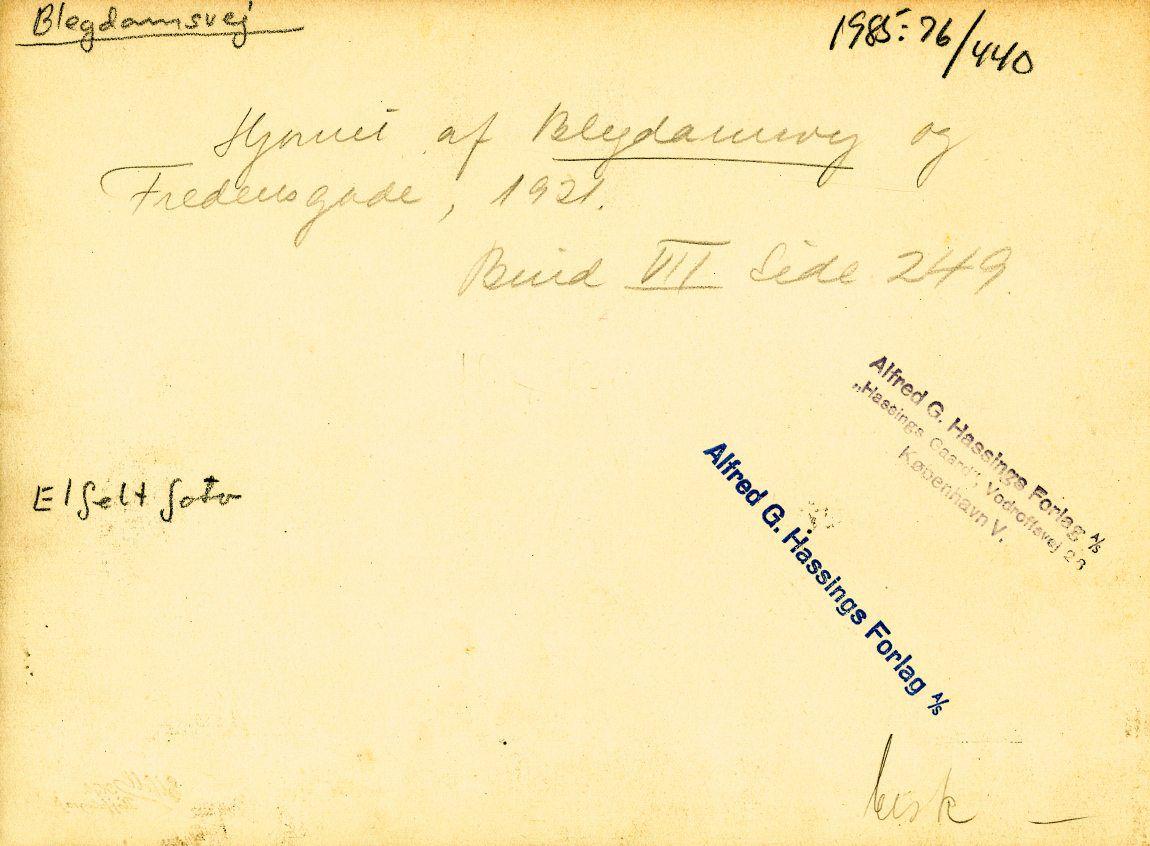 Blegdamsvej
1985:76/440
Hjørnet af Blegdamsvej og
Fredensgade, 1921.
Bind VII Side 249.
Alfred G. Hassings Forlag A/S
„Hassings Gaard", Vodroffsvej 26
København V.
Alfred G. Hassings Forlag A/S
Elfelt foto